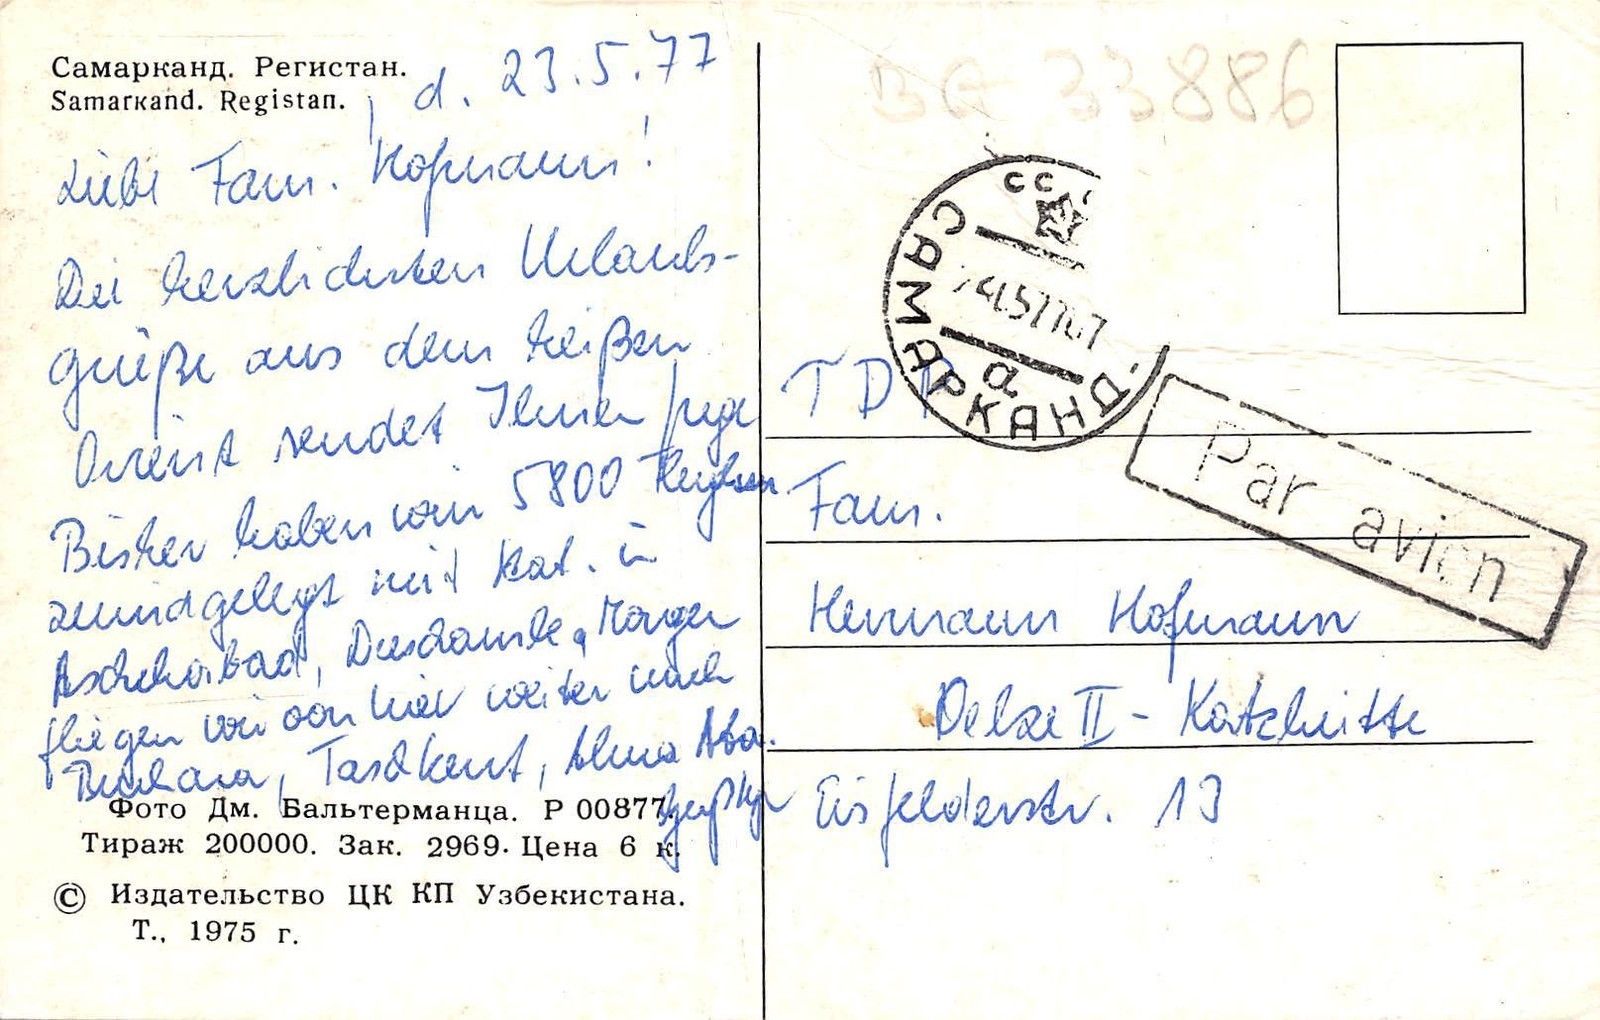 Самарканд. Регистан.
Samarкand. Registan.
, d. 23.5.77
Liebe Fam. Hofmann!
Die herzlichsten Urlaubs-
grüße aus dem heißen
Orient sendet Ihnen
Bisher haben wir 5800
zurückgelegt mit in
Aschchabad, Duschanbe, Morgen
fliegen wir von hier weiter nach
Buchara, Taschkent, Alma Ata.
Фото Дм. Бальтерманца. Р 00877.
Тираж 200000. Зак. 2969. Цена 6 к.
© Издательство ЦК КП Узбекистана.
Т., 1975 г.
BG 33886
САМАРКАНД
а
Par avion
Fam.
Hermann Hofmann
Oelze II - Katzhütte
Eisfelderstr. 13